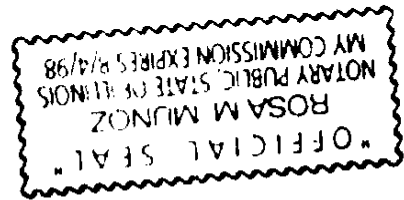 "OFFICIAL SEAL"
ROSA M MUNOZ
NOTARY PUBLIC, STATE OF ILLINOIS
MY COMMISSION EXPIRES 8/4/98